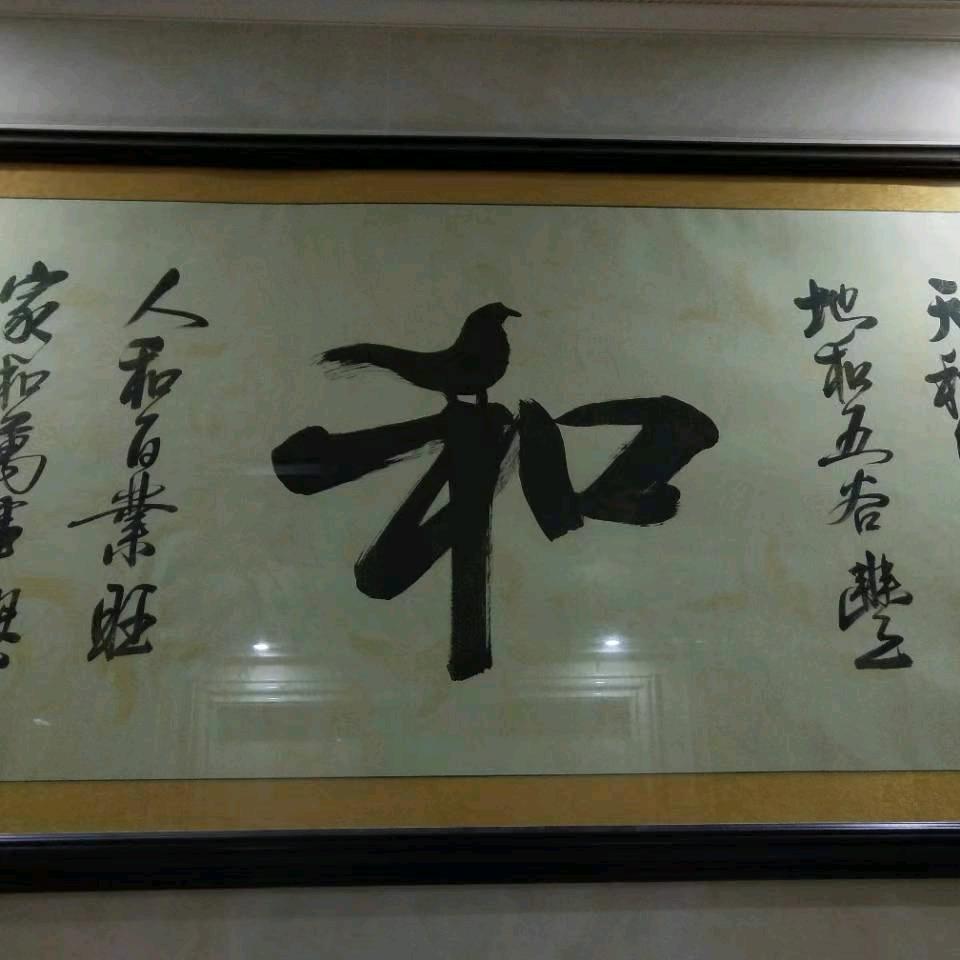 天和
地和五谷豐
和
人和百業旺
家和萬事興